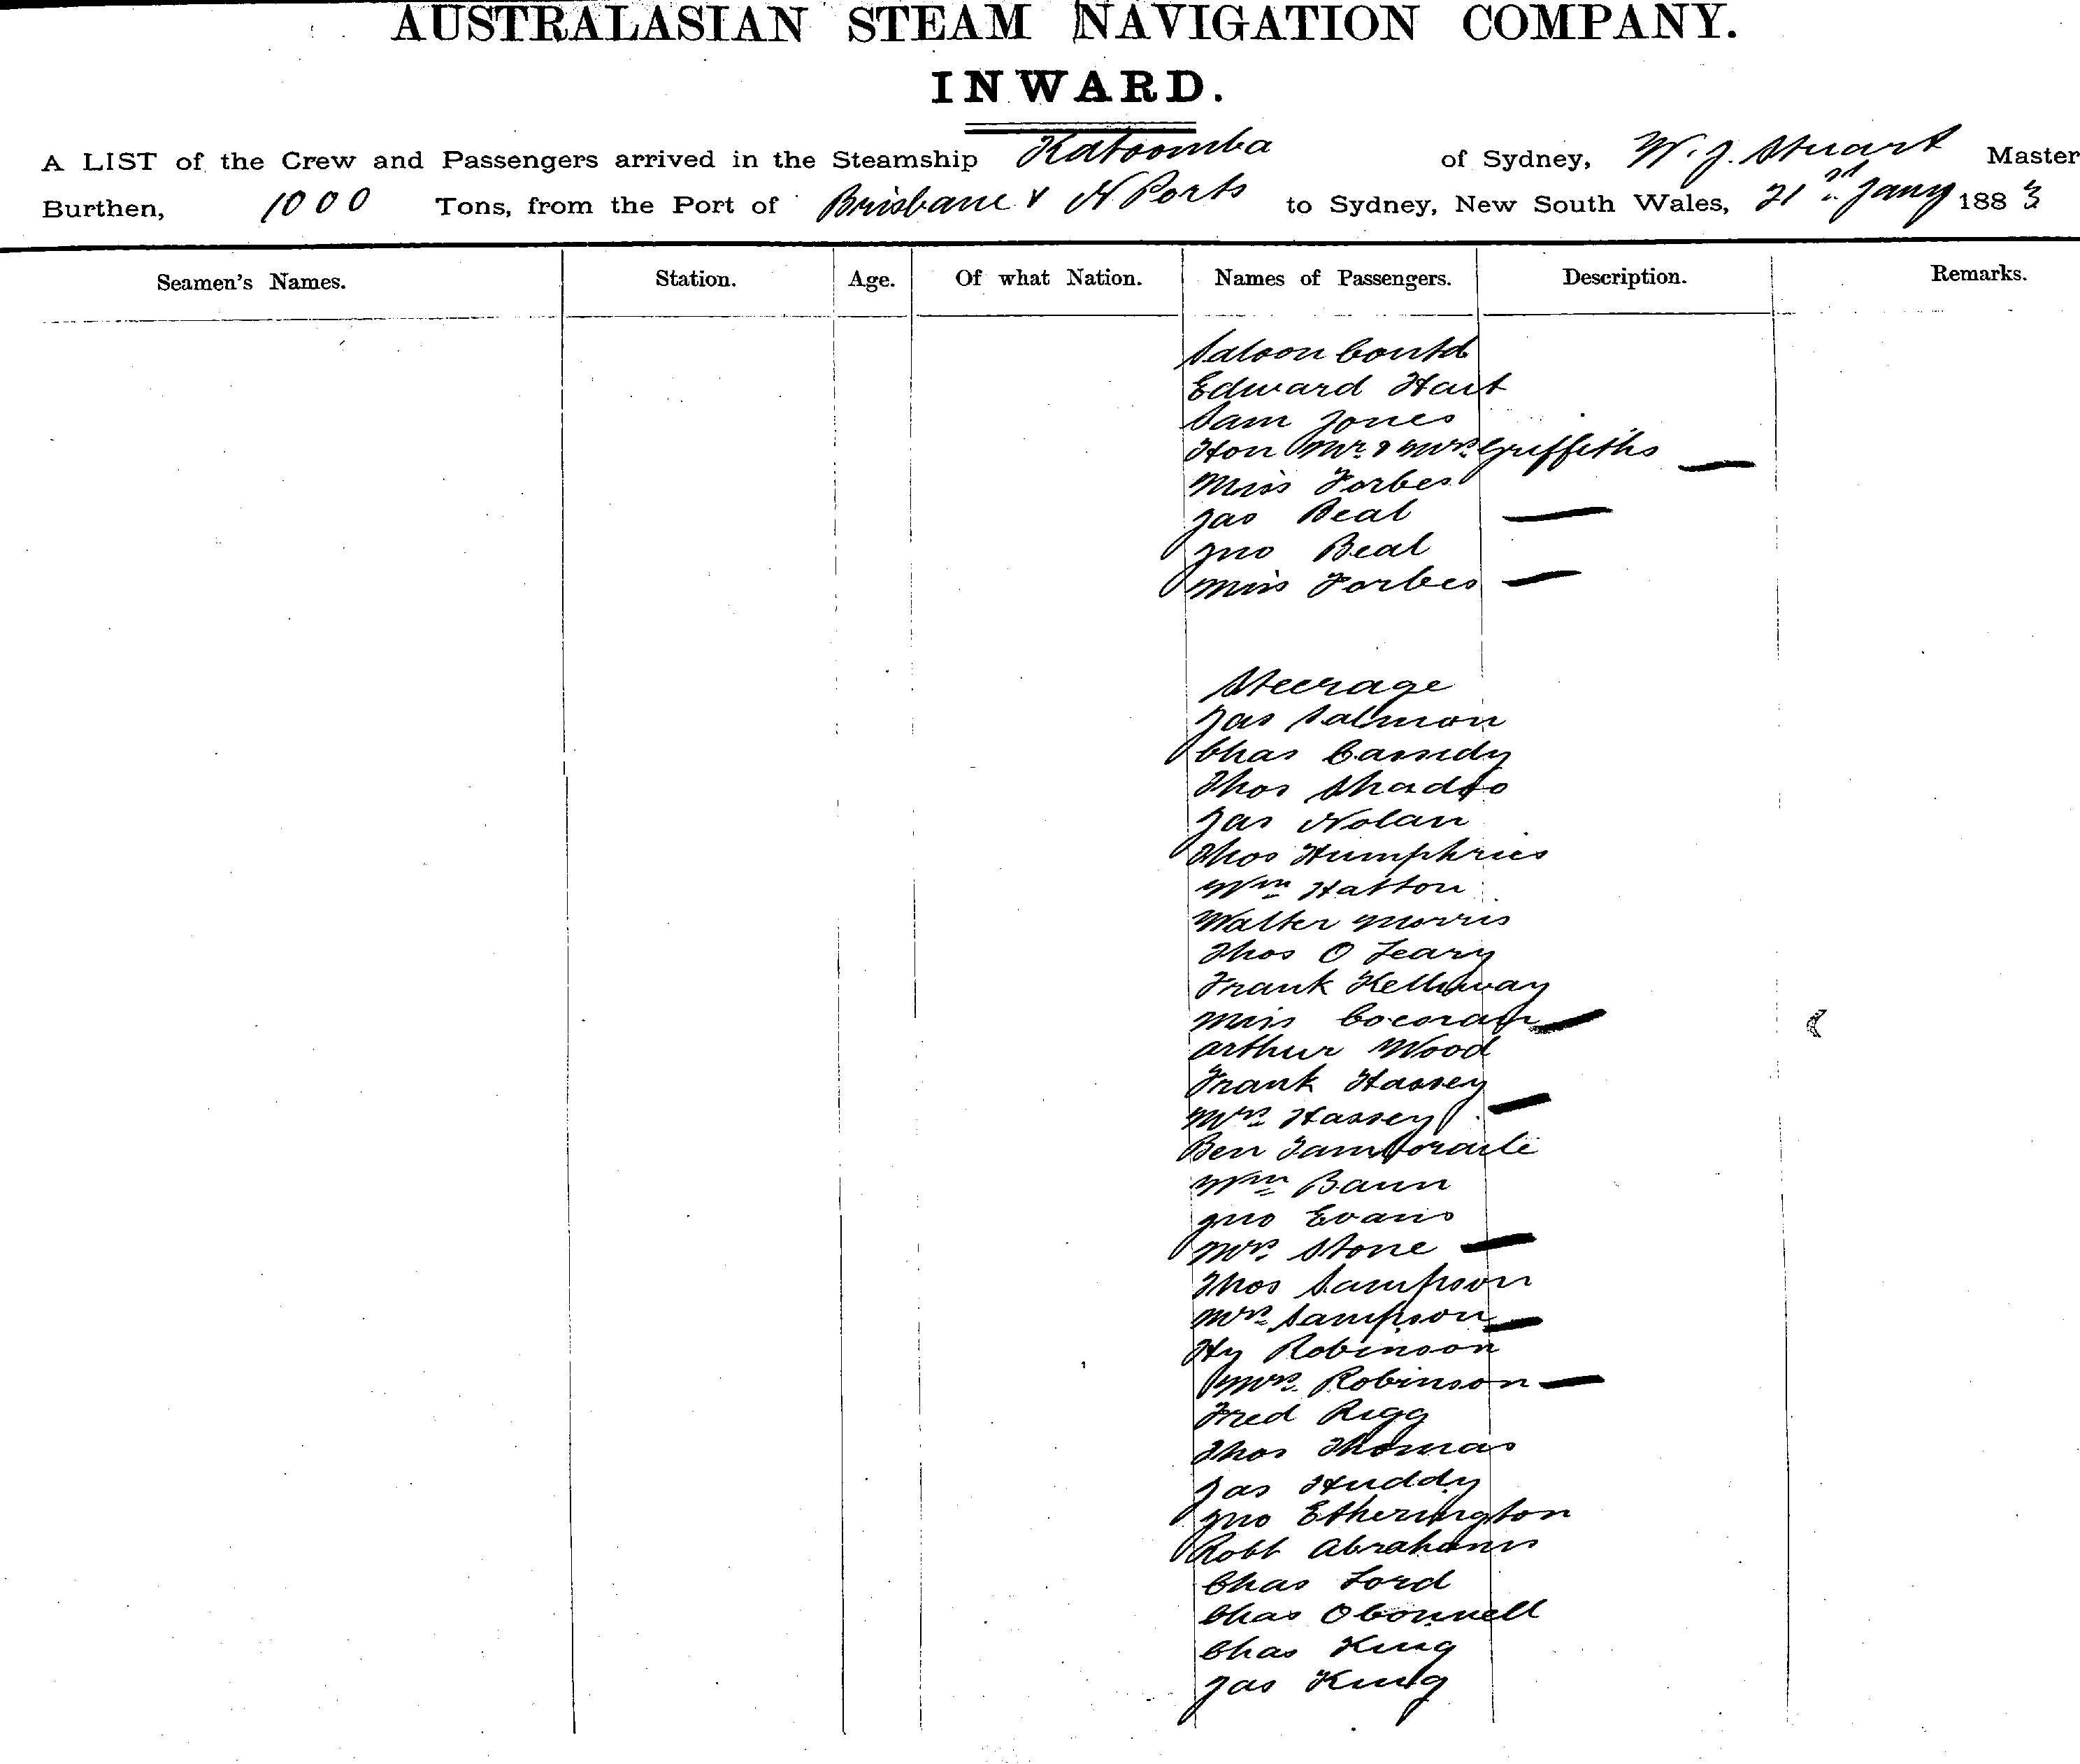 AUSTRALASIAN STEAM NAVIGATION COMPANY.
INWARD.
A LIST of the Crew and Passengers arrived in the Steamship Katoomba of Sydney, W. J. Stuart Master
Burthen, 1000 Tons, from the Port of Brisbane & N Ports to Sydney, New South Wales, 21st Jany 1883
Seamen's Names. Station. Age. Of what Nation. Names of Passengers. Description. Remarks.
Saloon Contd
Edward Hart
Sam Jones
Hon Mr. & Mrs. Griffiths
Miss Forbes
Jas Beal
Jno Beal
Miss Forbes
Steerage
Jas Salmon
Chas Cassidy
Thos
Jas Nolan
Thos Humphries
Wm Hatton
Walter Morris
Thos O Leary
Frank Kellaway
Miss Cocoran
Arthur Wood
Frank Hassey
Mrs. Hassey
Ben
Wm Bann
Jno Evans
Mrs. Stone
Thos Sampson
Mrs. Sampson
Hy Robinson
Mrs. Robinson
Fred Rigg
Thos Thomas
Jas Huddy
Jno Etherington
Robt Abrahams
Chas Lord
Chas OConnell
Chas King
Jas King